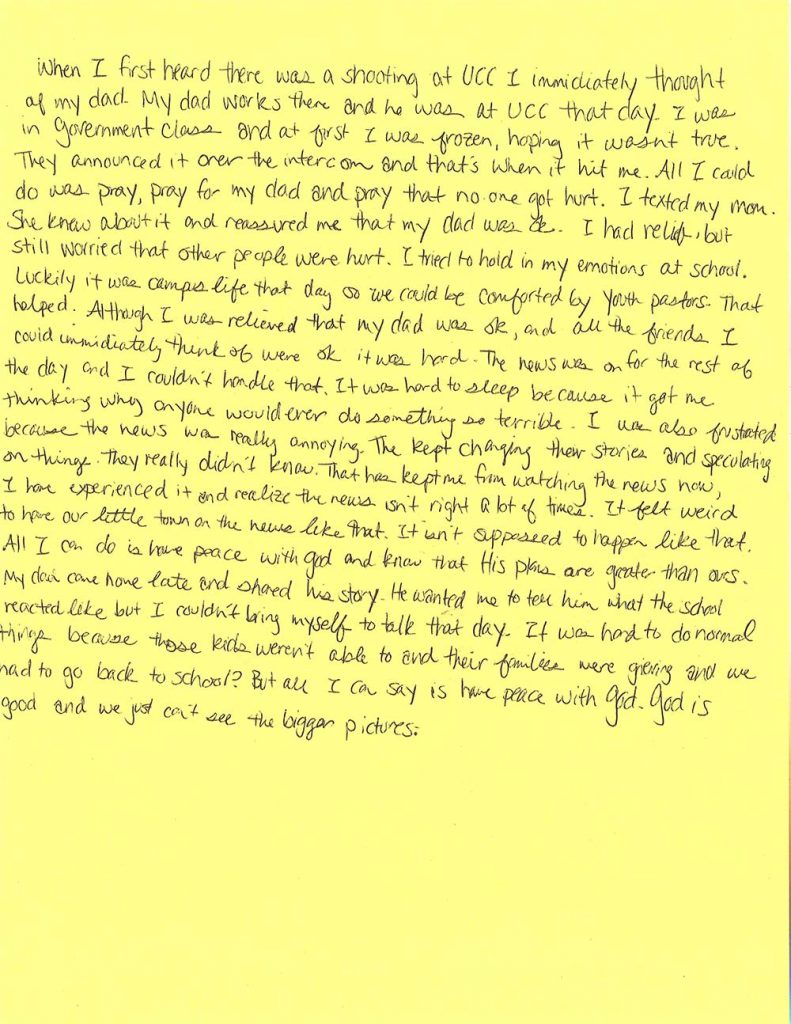 When I first heard there was a shooting at UCC I immidiately thought
of my dad. My dad works there and he was at UCC that day. I was
in Government class and at first I was frozen, hoping it wasn't true.
They announced it over the intercom and that's when it hit me. All I could
do was pray, pray for my dad and pray that no one got hurt. I texted my mom.
She knew about it and reassured me that my dad was ok. I had relief, but
still worried that other people were hurt. I tried to hold in my emotions at school.
Luckily it was campus life that day so we could be comforted by youth pastors. That
helped. Although I was relieved that my dad was ok, and all the friends I
could immidiately think of were ok it was hard. The news was on for the rest of
the day and I couldn't handle that. It was hard to sleep because it got me
thinking why anyone would ever do something so terrible. I was also frustrated
because the news was really annoying. The kept changing their stories and speculating
on things. They really didn't know. That has kept me from watching the news now,
I have experienced it and realize the news isn't right a lot of times. It felt weird
to have our little town on the news like that. It isn't supposed to happen like that.
All I can do is have peace with god and know that His plans are greater than ours.
My dad came home late and shared his story. He wanted me to tell him what the school
reacted like but I couldn't bring myself to talk that day. It was hard to do normal
things because those kids weren't able to and their families were grieving and we
had to go back to school? But all I can say is have peace with god. God is
good and we just can't see the bigger pictures.